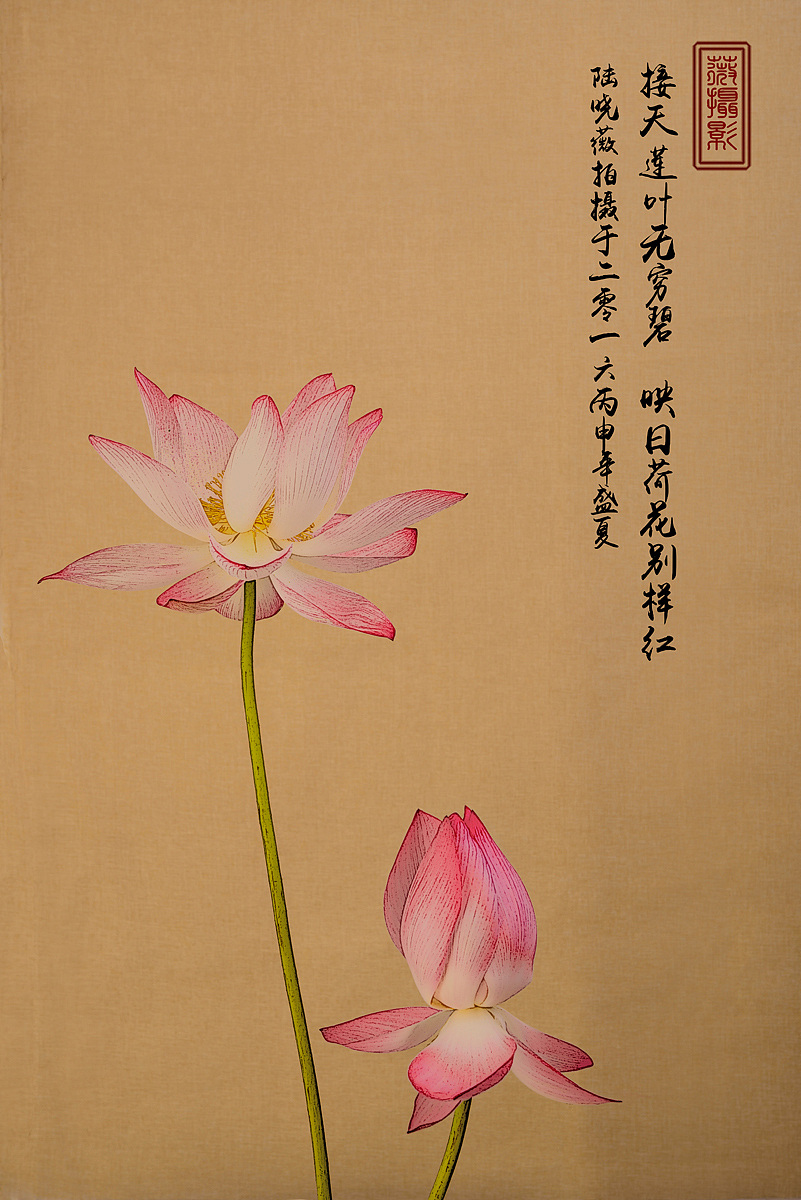 薇攝影
接天莲叶无穷碧 映日荷花别样红
陆晓薇拍摄于二零一六丙申年盛夏